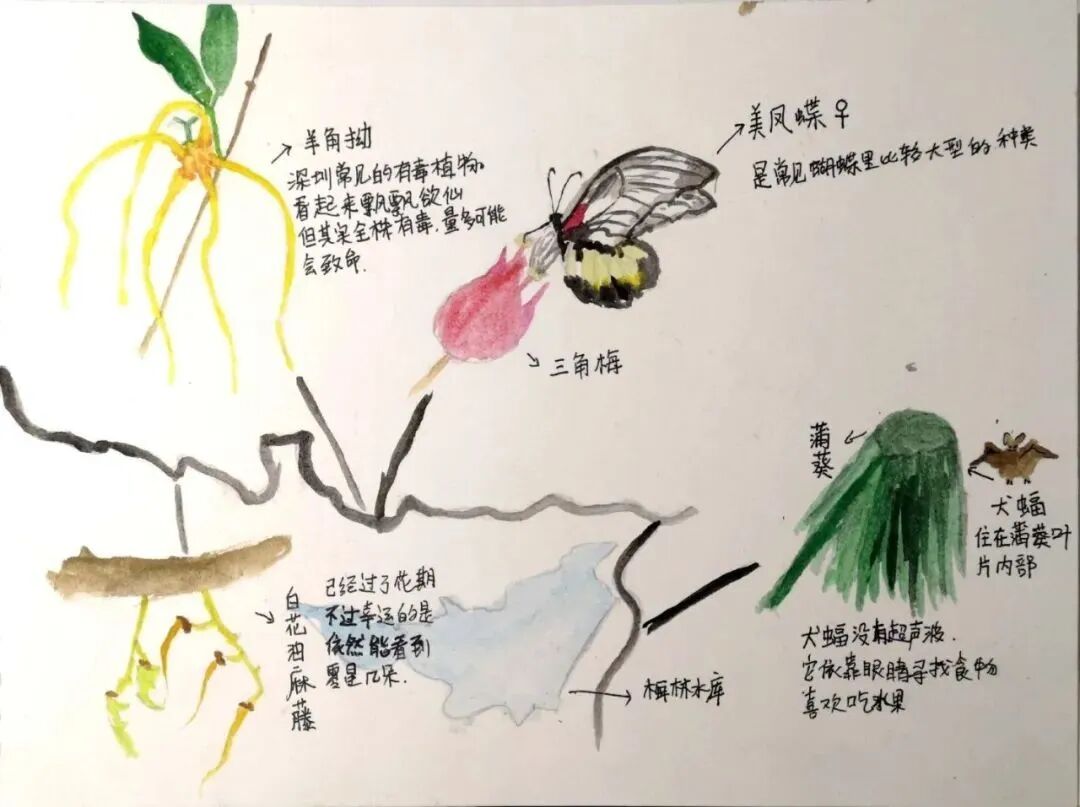 羊角拗
深圳常见的有毒植物
看起来飘飘欲仙
但其实全株有毒，量多可能
会致命.
美凤蝶♀
是常见蝴蝶里比较大型的种类
三角梅
蒲葵
犬蝠
住在蒲葵叶
片内部
犬蝠没有超声波.
它依靠眼睛寻找食物
喜欢吃水果
白花油麻藤
已经过了花期
不过幸运的是
依然能看到
零星几朵.
梅林水库